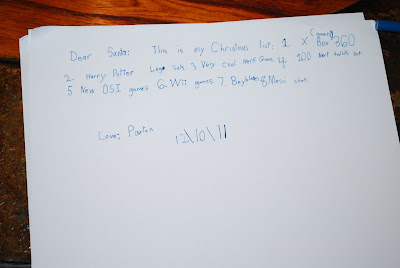 Dear Santa: This is my Christmas list: 1. X Box 360
2. Harry Potter Lego sets 3. Very cool nerf Guns. 4. 100 nerf bullets set.
5 New DSI games 6. Wii games 7. Beyblades 8. Messi shirt.
Love: Paxton
12\10\11